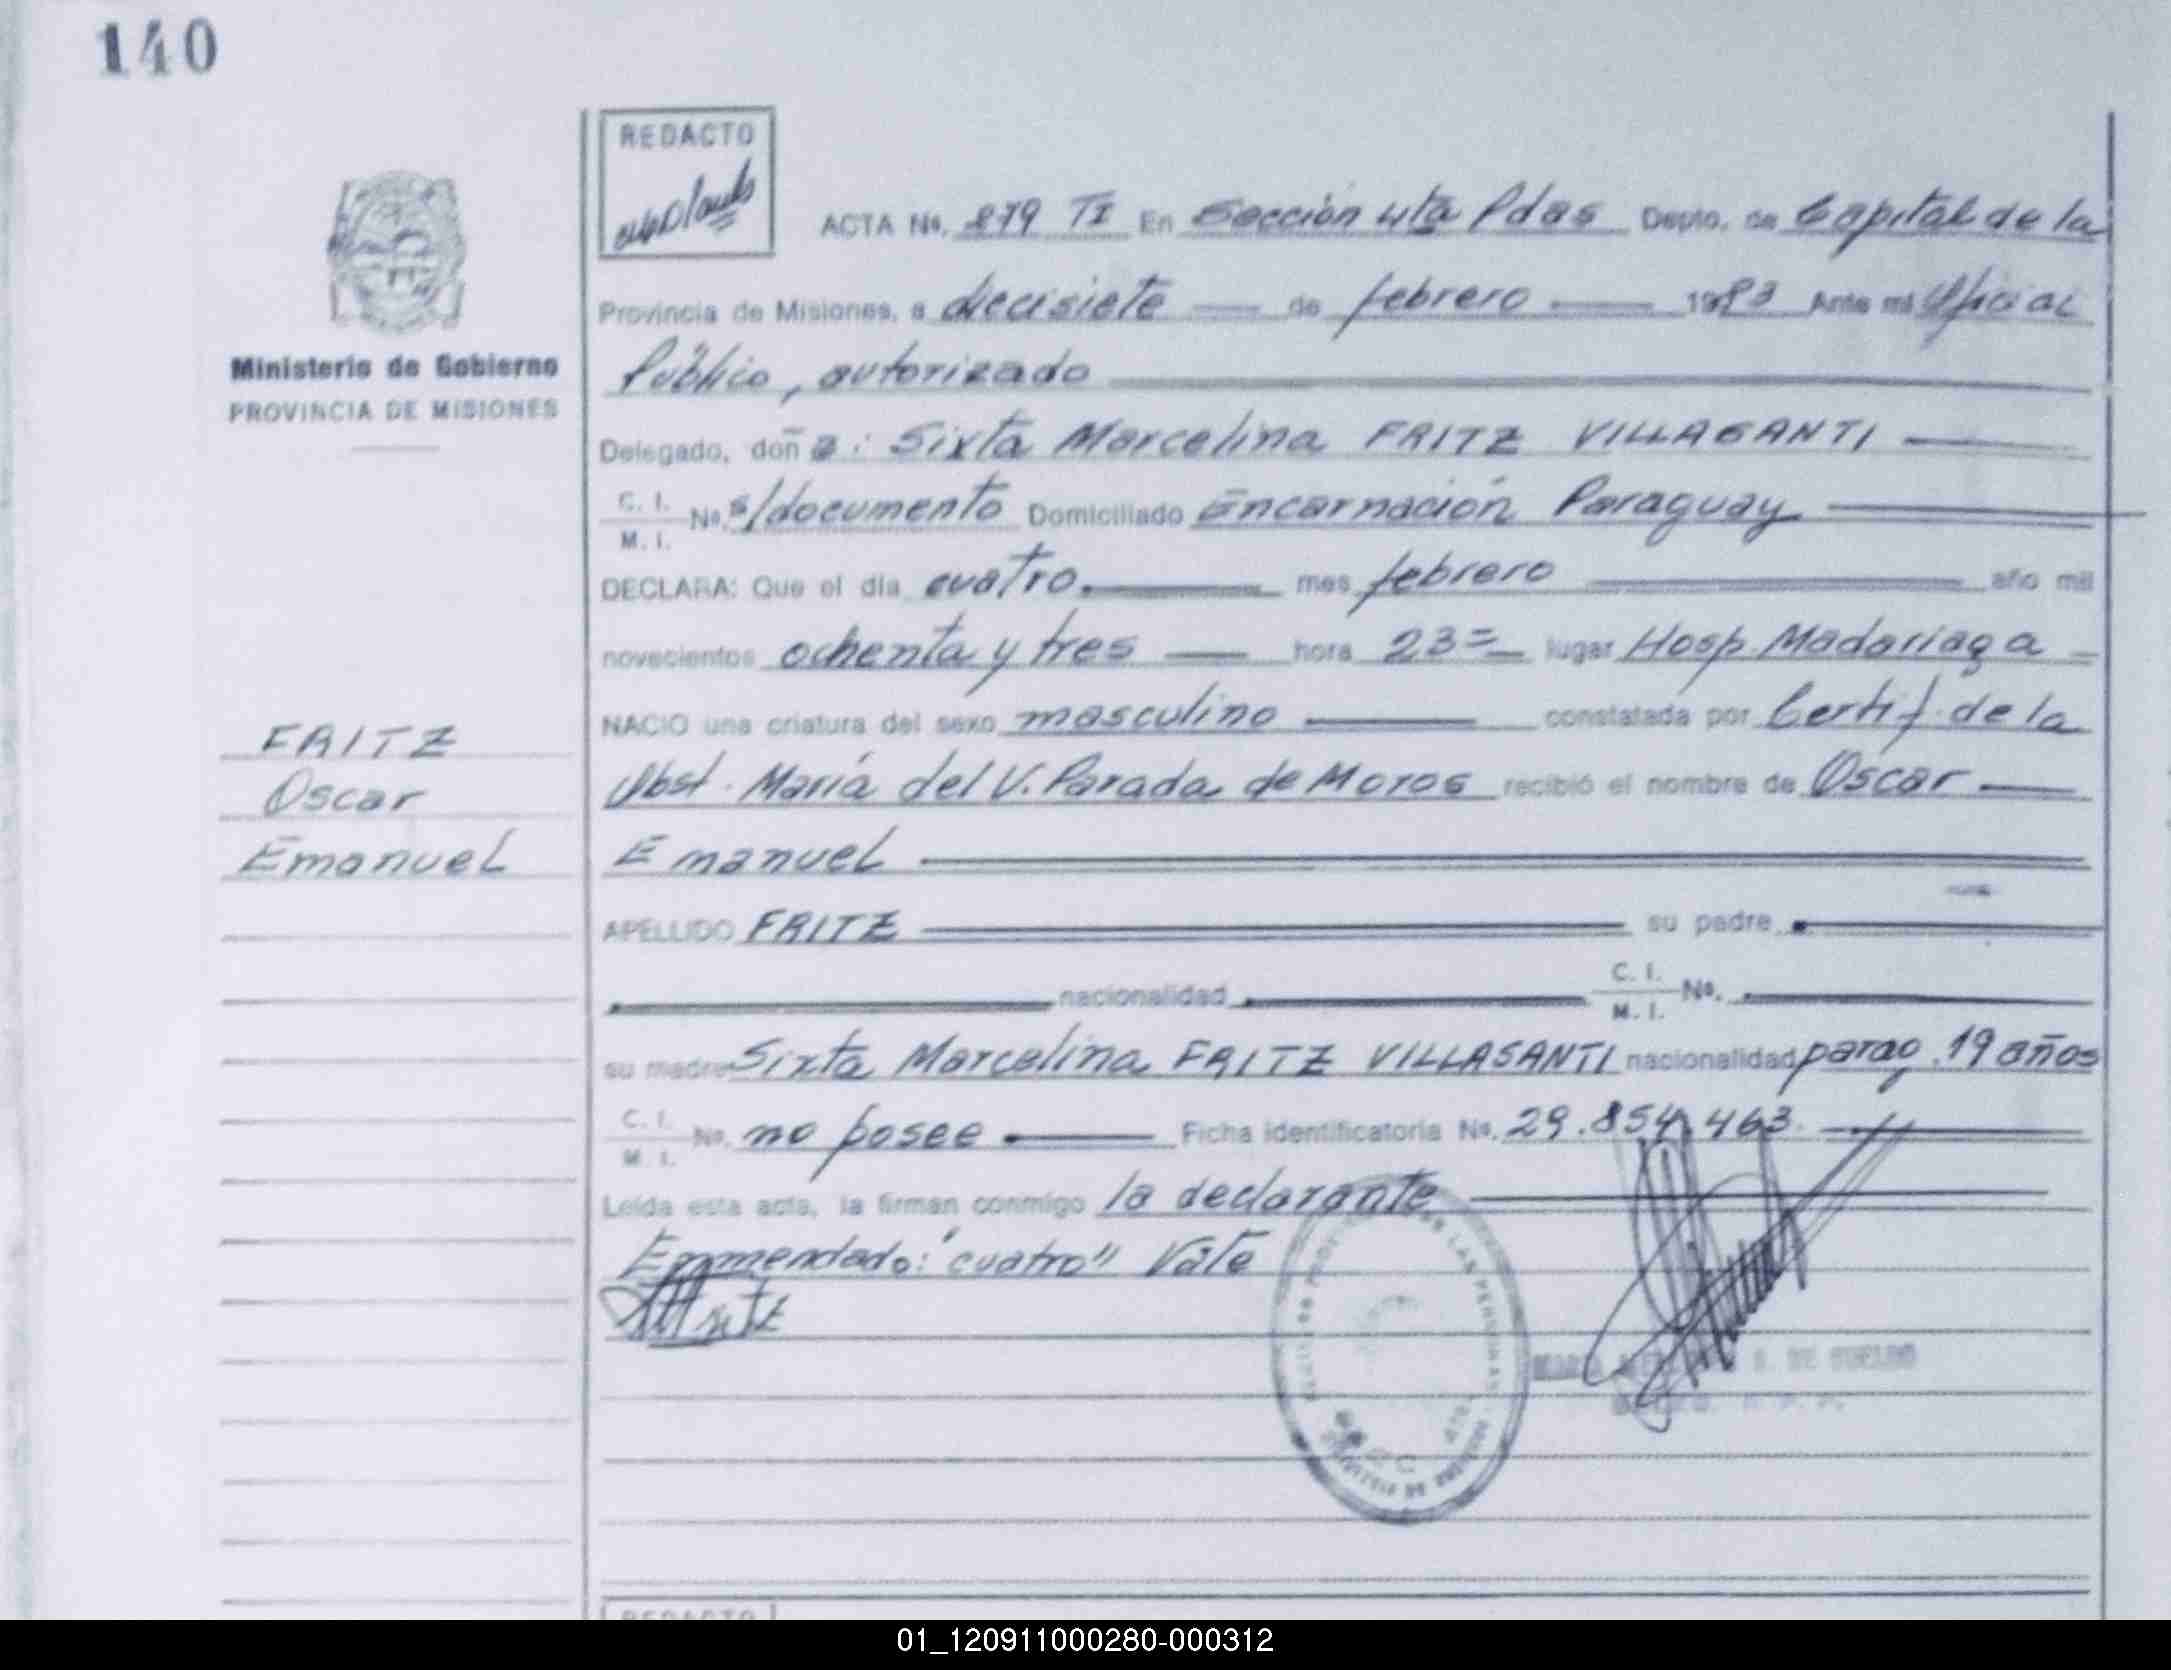 140
REDACTO
ACTA No. 279 TI En Sección 4ta Pdas Depto. de Capital de la
Provincia de Misiones, a diecisiete de febrero 1983 Ante mi Oficial
Ministerio de Gobierno
PROVINCIA DE MISIONES
Público, autorizado
Delegado, doña: Sixta Marcelina FRITZ VILLASANTI
C. I.
M. I.
No. s/documento Domiciliado Encarnación Paraguay
DECLARA: Que el día cuatro. mes febrero año mil
novecientos ochenta y tres hora 23= lugar Hosp. Madariaga
NACIO una criatura del sexo masculino constatada por Certif. de la
FRITZ
Oscar
Emanuel
Obst. María del V. Parada de Moros recibió el nombre de Oscar
Emanuel
APELLIDO FRITZ su padre
nacionalidad C. I.
M. I. No.
su madre Sixta Marcelina FRITZ VILLASANTI nacionalidad parag. 19 años
C. I.
M. I.
No. no posee Ficha identificatoria No. 29.854.463.
Leída esta acta, la firman conmigo la declarante
Emmendado: "cuatro" Vale
DE
REDACTO
01_120911000280-000312